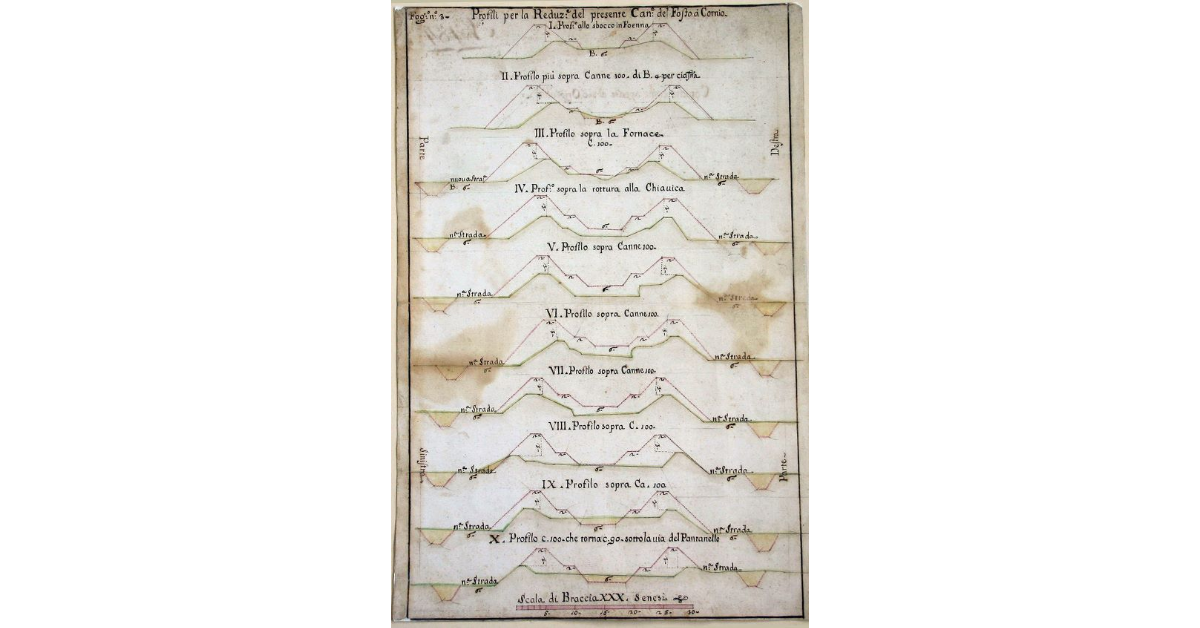 Pag.ª nº. 3.
Profili per la Reduz.ᵉ del presente Can.ᵉ del Fosso di Cornio.
I. Prof.º allo sbocco in Foenna
B. 6.
II. Profilo più sopra Canne 100. di B. 4 per ciasch.ª
B. 6
III. Profilo sopra la Fornace.
C. 100.
Parte
Destra
nuova Strad.ª
B. 6.
6
nª. Strada
6
IV. Prof.º sopra la rottura alla Chiavica
6
nª. Strada
6
nª. Strada
6
V. Profilo sopra Canne 100.
6
nª. Strada
6
nª. Strada
6
VI. Profilo sopra Canne 100.
6
nª. Strada
6
nª. Strada
6
VII. Profilo sopra Canne 100.
6
nª. Strada
6
nª. Strada
6
VIII. Profilo sopra C. 100.
Sinistra
Parte
6
nª. Strada
6
nª. Strada
6
IX. Profilo sopra Ca. 100
6
nª. Strada
6
nª. Strada
6
X. Profilo c. 100. che torna c. 90. sotto la via del Pantanello
6
nª. Strada
6
nª. Strada
6
Scala di Braccia XXX. Senesi
5. 10. 15. 20. 25. 30.